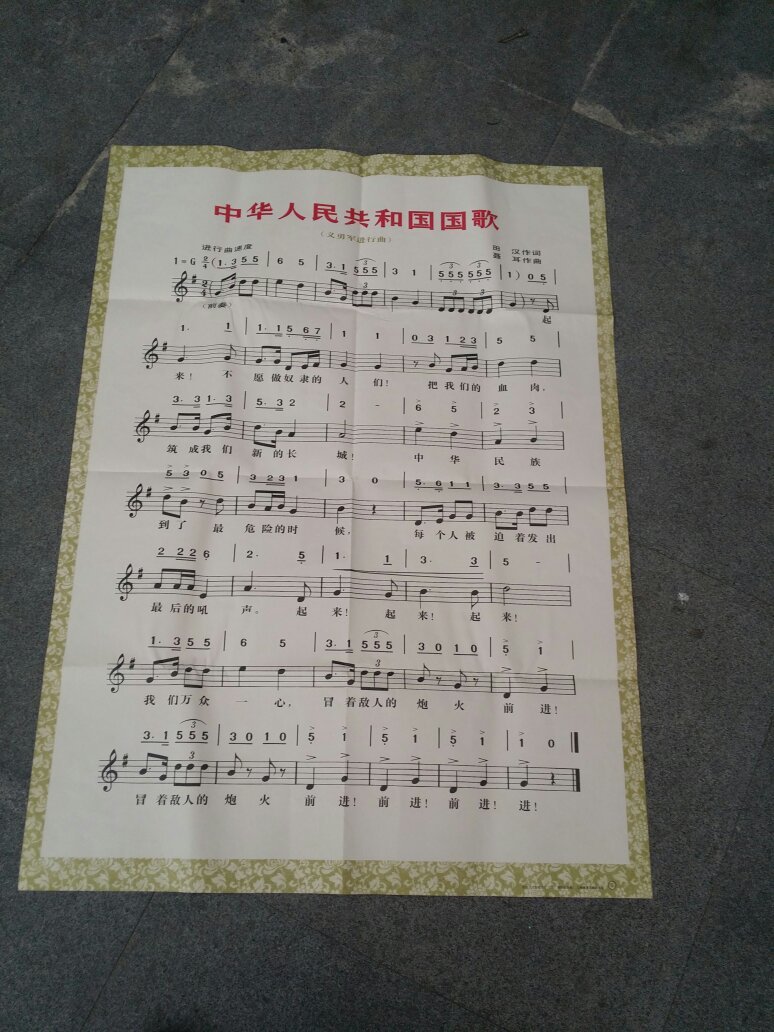 中华人民共和国国歌
（义勇军进行曲）
进行曲速度
田 汉作词
聂 耳作曲
1=G 2/4 (1. 3 5 5 | 6 5 | 3. 1 5 5 5 | 3 1 | 5 5 5 5 5 5 | 1) 0 5 |
（前奏）
起
1. 1 | 1. 1 5 6 7 | 1 1 | 0 3 1 2 3 | 5 5 |
来！ 不 愿做奴隶的 人 们！ 把我们的 血 肉，
3. 3 1. 3 | 5. 3 2 | 2 - | 6 5 | 2 3 |
筑成我们 新的长 城！ 中 华 民 族
5 3 0 5 | 3 2 3 1 | 3 0 | 5. 6 1 1 | 3. 3 5 5 |
到了 最 危险的时 候， 每个人被 迫着发出
2 2 2 6 | 2. 5 | 1. 1 | 3. 3 | 5 - |
最后的吼 声。 起 来！ 起 来！ 起 来！
1. 3 5 5 | 6 5 | 3. 1 5 5 5 | 3 0 1 0 | 5 1 |
我们万众 一 心， 冒着敌人的 炮 火 前 进！
3. 1 5 5 5 | 3 0 1 0 | 5 1 | 5 1 | 5 1 | 1 0 ‖
冒着敌人的 炮 火 前 进！ 前 进！ 前 进！ 进！